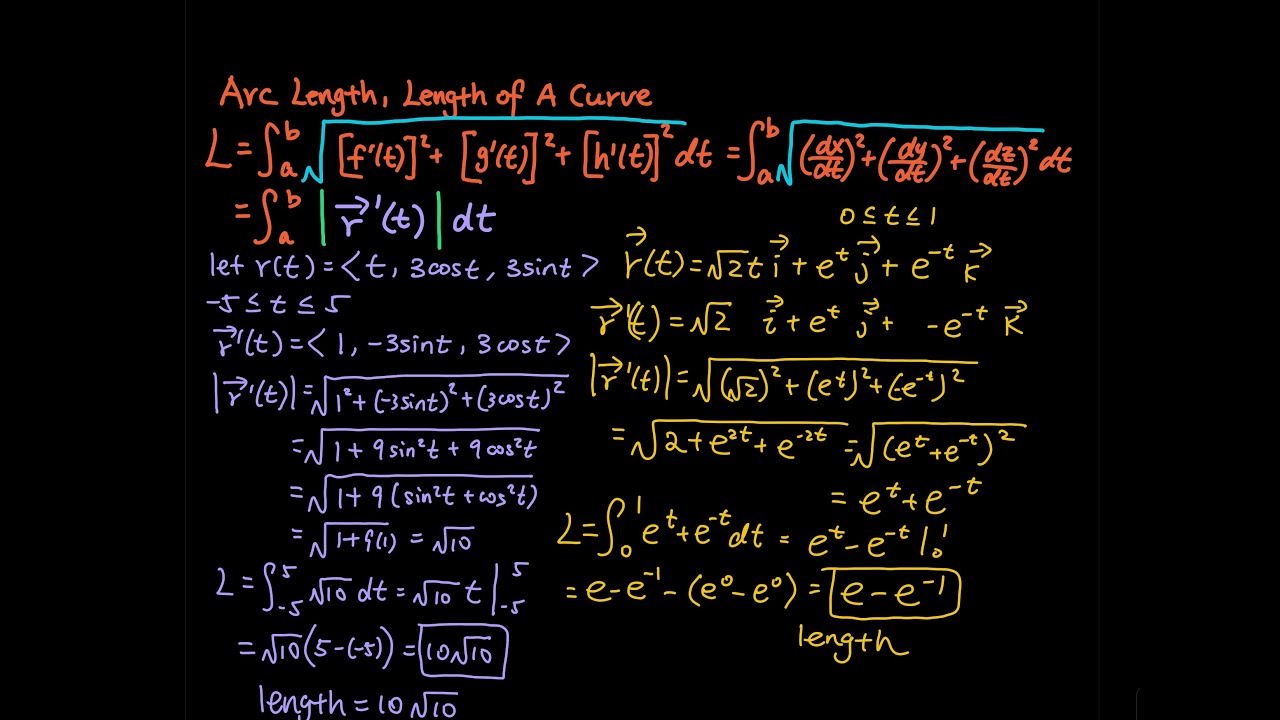 Arc Length, Length of A Curve
L = ∫ₐᵇ √([f'(t)]² + [g'(t)]² + [h'(t)]²) dt = ∫ₐᵇ √((dx/dt)² + (dy/dt)² + (dz/dt)²) dt
= ∫ₐᵇ |r⃗'(t)| dt
let r(t) = <t, 3cost, 3sint>
-5 ≤ t ≤ 5
r⃗'(t) = <1, -3sint, 3cost>
|r⃗'(t)| = √(1² + (-3sint)² + (3cost)²)
= √(1 + 9sin²t + 9cos²t)
= √(1 + 9(sin²t + cos²t))
= √(1+9(1)) = √10
L = ∫₋₅⁵ √10 dt = √10 t |₋₅⁵
= √10(5-(-5)) = 10√10
length = 10√10
0 ≤ t ≤ 1
r⃗(t) = √2 t i⃗ + eᵗ j⃗ + e⁻ᵗ k⃗
r⃗'(t) = √2 i⃗ + eᵗ j⃗ + -e⁻ᵗ k⃗
|r⃗'(t)| = √((√2)² + (eᵗ)² + (-e⁻ᵗ)²)
= √(2 + e²ᵗ + e⁻²ᵗ) = √((eᵗ + e⁻ᵗ)²)
= eᵗ + e⁻ᵗ
L = ∫₀¹ eᵗ + e⁻ᵗ dt = eᵗ - e⁻ᵗ |₀¹
= e - e⁻¹ - (e⁰ - e⁰) = e - e⁻¹
length